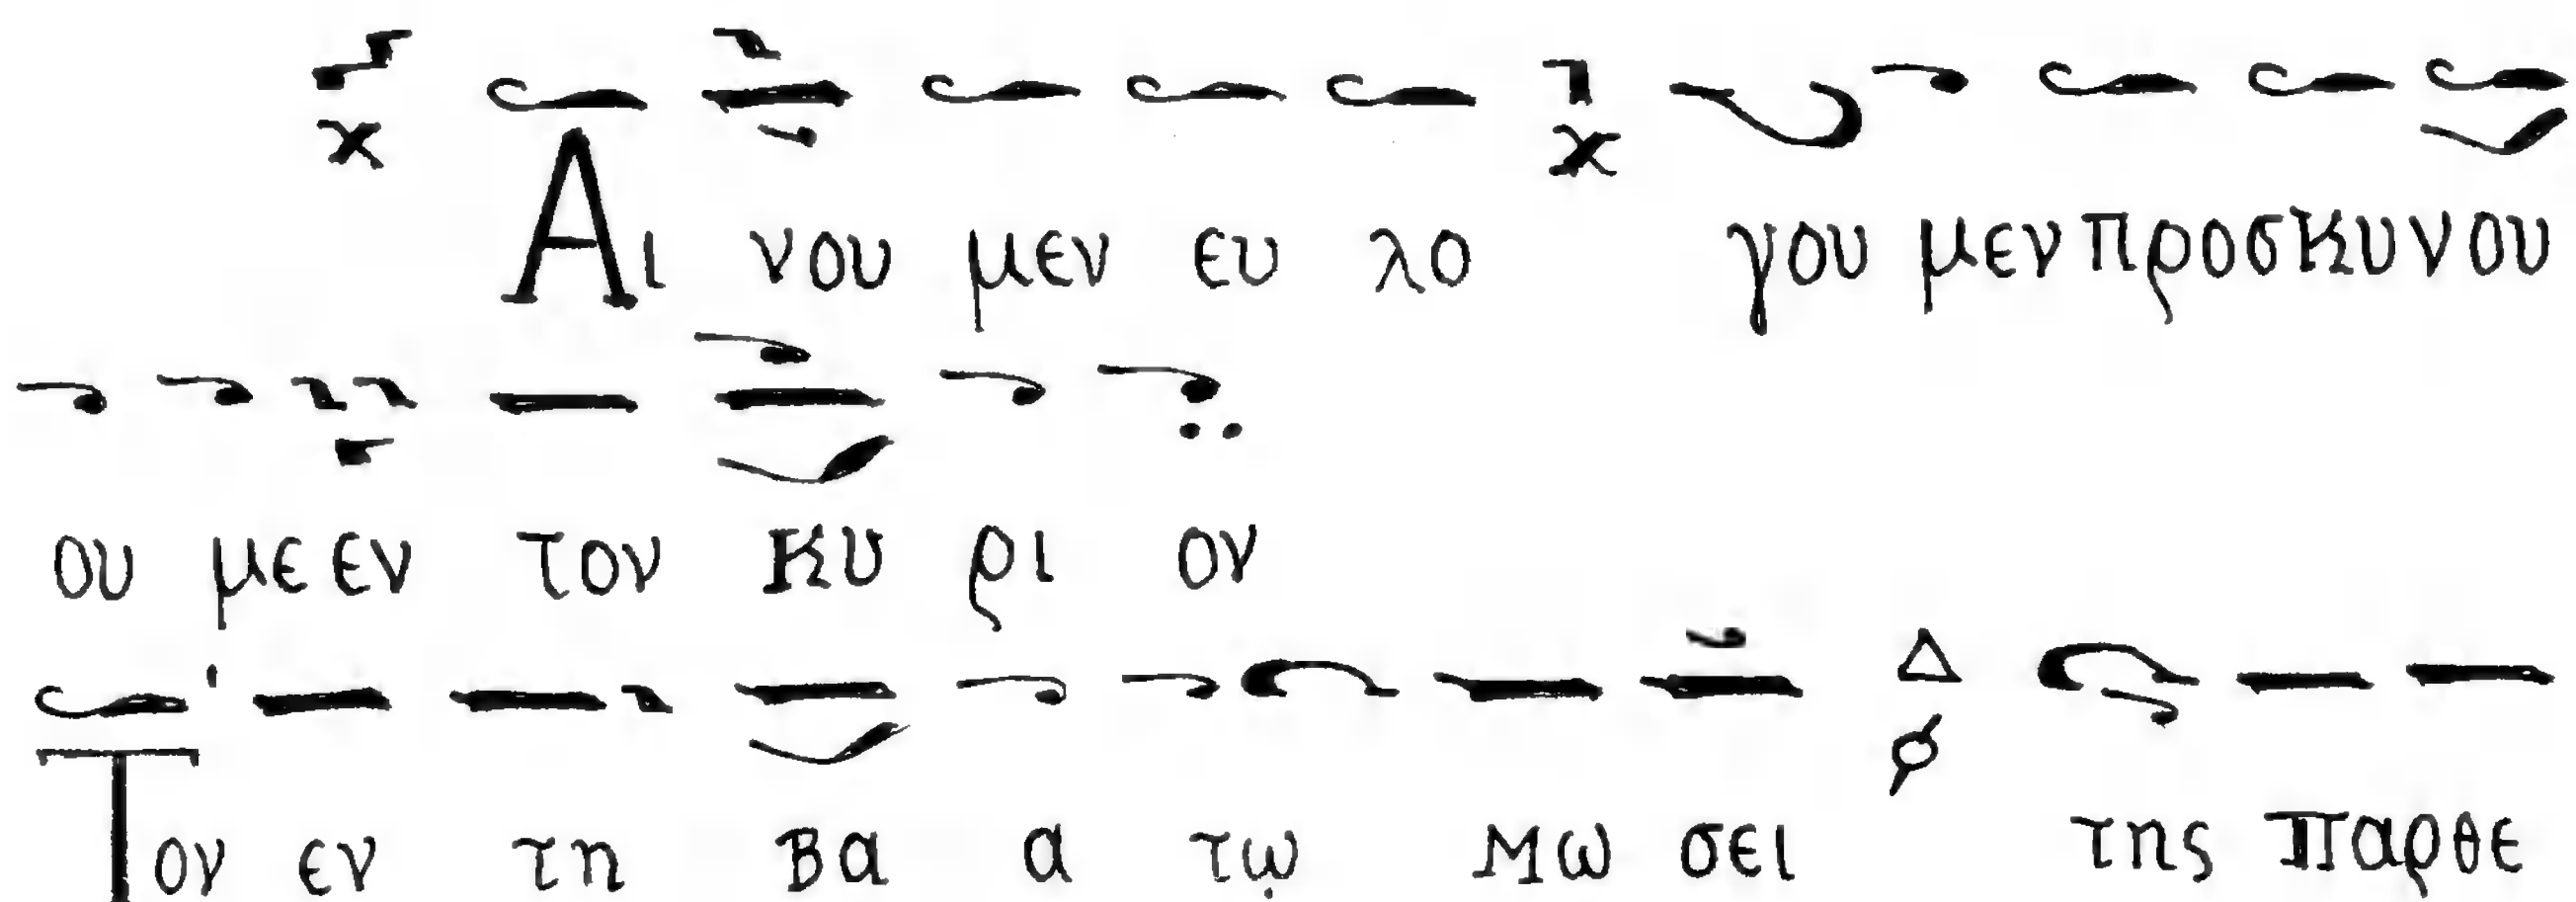 Αι νου μεν ευ λο γου μεν προσκυνου
ου με εν τον κυ ρι ον
Τον εν τη βα α τῳ Μω σει Δ της παρθε